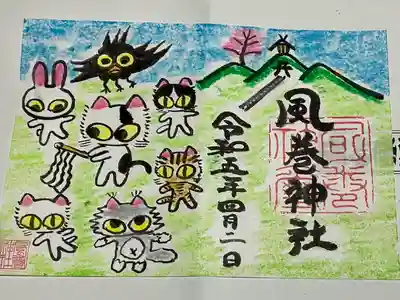 風巻神社
令和五年四月二日